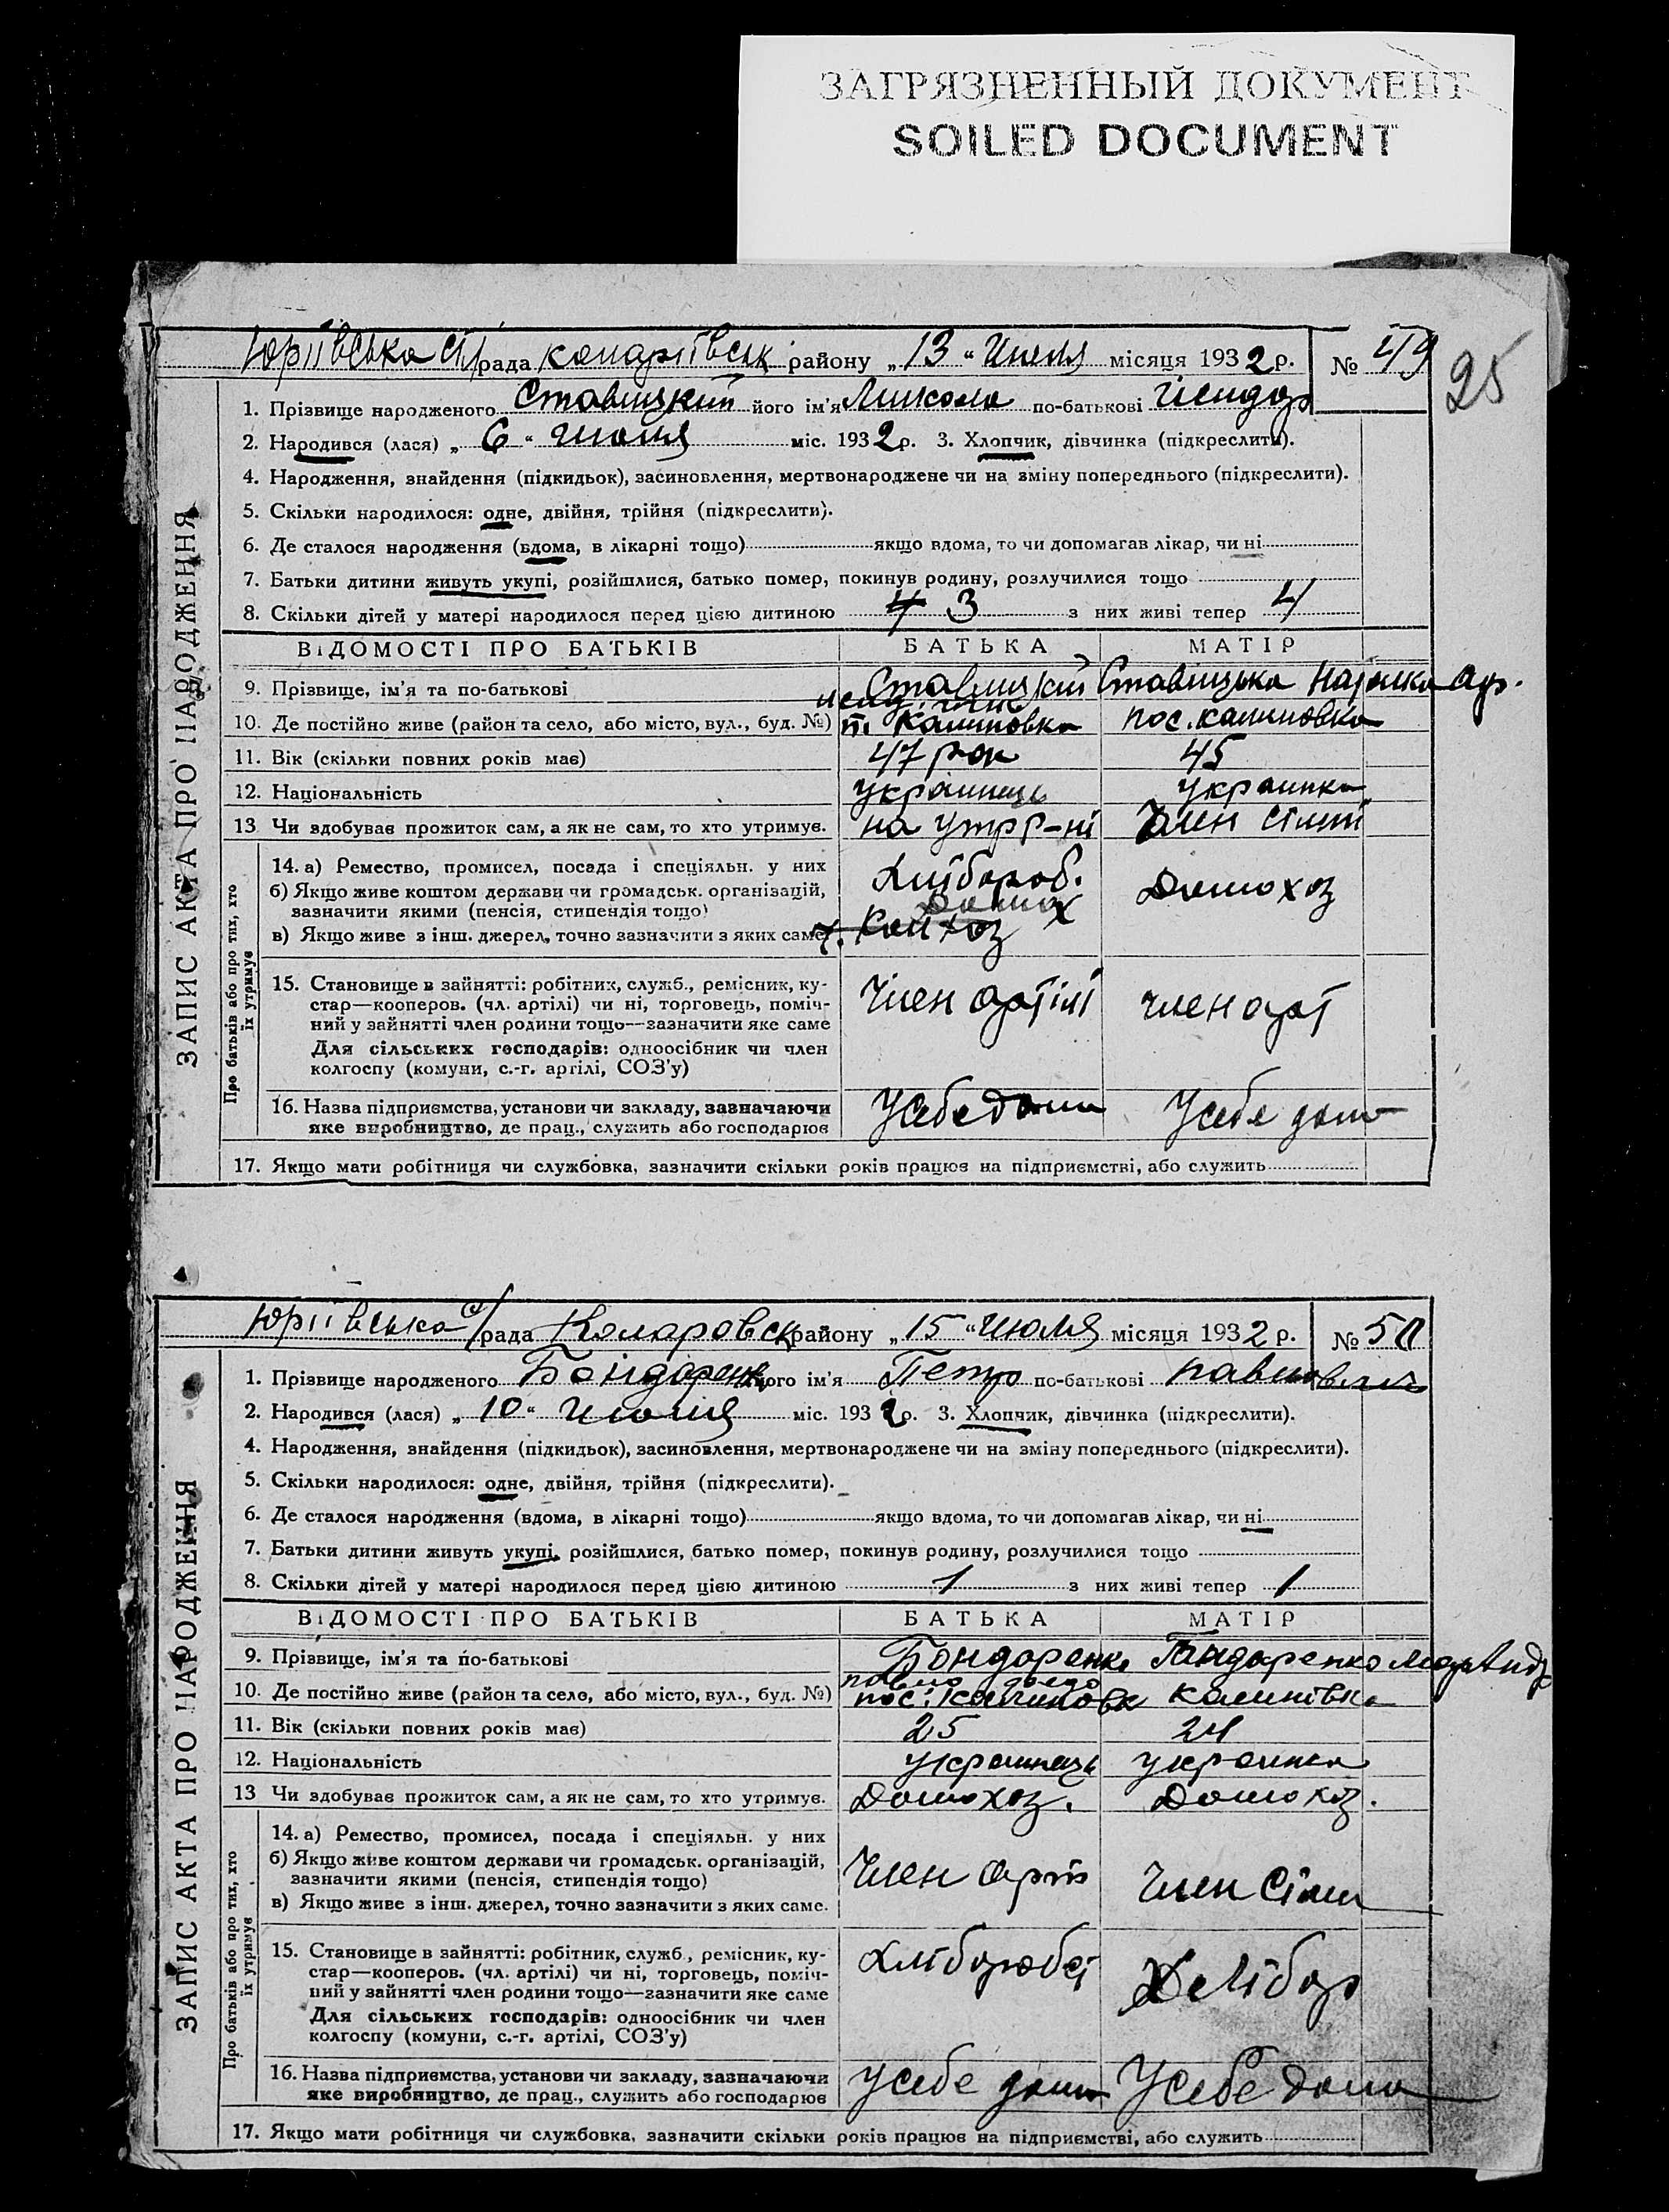 ЗАГРЯЗНЕННЫЙ ДОКУМЕНТ
SOILED DOCUMENT
25
ЗАПИС АКТА ПРО НАРОДЖЕННЯ
Юріївська с/рада району „13“ Июля місяця 1932 р. № 49
1. Прізвище народженого Ставицкий його ім'я Микола по-батькові Исидор
2. Народився (лася) „6“ Июля міс. 1932 р. 3. Хлопчик, дівчинка (підкреслити).
4. Народження, знайдення (підкидьок), засиновлення, мертвонароджене чи на зміну попереднього (підкреслити).
5. Скільки народилося: одне, двійня, трійня (підкреслити).
6. Де сталося народження (вдома, в лікарні тощо) якщо вдома, то чи допомагав лікар, чи ні
7. Батьки дитини живуть укупі, розійшлися, батько помер, покинув родину, розлучилися тощо
8. Скільки дітей у матері народилося перед цією дитиною 4 3 з них живі тепер 4
ВІДОМОСТІ ПРО БАТЬКІВ БАТЬКА МАТІР
9. Прізвище, ім'я та по-батькові Ставицкий Ставицька
10. Де постійно живе (район та село, або місто, вул., буд. №) п. Калиновка пос. калиновка
11. Вік (скільки повних років має) 47 рок 45
12. Національність українець украинка
13 Чи здобуває прожиток сам, а як не сам, то хто утримує. на утр-ні Член сімї
Про батьків або про тих, хто їх утримує
14. а) Ремество, промисел, посада і спеціяльн. у них Хлібороб.
б) Якщо живе коштом держави чи громадськ. організацій,
зазначити якими (пенсія, стипендія тощо) Домохоз
в) Якщо живе з інш. джерел, точно зазначити з яких саме.
15. Становище в зайнятті: робітник, служб., ремісник, ку-
стар—кооперов. (чл. артілі) чи ні, торговець, поміч- Член артілі член арт
ний у зайнятті член родини тощо—зазначити яке саме
Для сільських господарів: одноосібник чи член
колгоспу (комуни, с.-г. артілі, СОЗ'у)
16. Назва підприємства, установи чи закладу, зазначаючи Усебе дома Усебе дома
яке виробництво, де прац., служить або господарює
17. Якщо мати робітниця чи службовка, зазначити скільки років працює на підприємстві, або служить
ЗАПИС АКТА ПРО НАРОДЖЕННЯ
Юріївська с/рада Коларовськ району „15“ Июля місяця 1932 р. № 50
1. Прізвище народженого Бондаренко його ім'я Петро по-батькові павлович
2. Народився (лася) „10“ Июля міс. 1932 р. 3. Хлопчик, дівчинка (підкреслити).
4. Народження, знайдення (підкидьок), засиновлення, мертвонароджене чи на зміну попереднього (підкреслити).
5. Скільки народилося: одне, двійня, трійня (підкреслити).
6. Де сталося народження (вдома, в лікарні тощо) якщо вдома, то чи допомагав лікар, чи ні
7. Батьки дитини живуть укупі, розійшлися, батько помер, покинув родину, розлучилися тощо
8. Скільки дітей у матері народилося перед цією дитиною 1 з них живі тепер 1
ВІДОМОСТІ ПРО БАТЬКІВ БАТЬКА МАТІР
9. Прізвище, ім'я та по-батькові Бондаренко Бондаренко
павло
10. Де постійно живе (район та село, або місто, вул., буд. №) пос. Калиновк калинівка
11. Вік (скільки повних років має) 25 24
12. Національність украинець украинка
13 Чи здобуває прожиток сам, а як не сам, то хто утримує. Домохоз. Домохоз.
Про батьків або про тих, хто їх утримує
14. а) Ремество, промисел, посада і спеціяльн. у них
б) Якщо живе коштом держави чи громадськ. організацій, Член арті Член сімї
зазначити якими (пенсія, стипендія тощо)
в) Якщо живе з інш. джерел, точно зазначити з яких саме.
15. Становище в зайнятті: робітник, служб., ремісник, ку-
стар—кооперов. (чл. артілі) чи ні, торговець, поміч-
ний у зайнятті член родини тощо—зазначити яке саме
Для сільських господарів: одноосібник чи член
колгоспу (комуни, с.-г. артілі, СОЗ'у)
16. Назва підприємства, установи чи закладу, зазначаючи усебе дома Усебе дома
яке виробництво, де прац., служить або господарює
17. Якщо мати робітниця чи службовка, зазначити скільки років працює на підприємстві, або служить